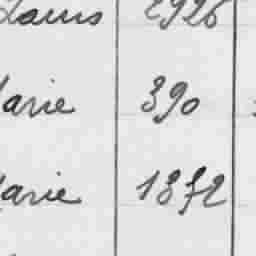 Louis 2926
Marie 390
Marie 1872